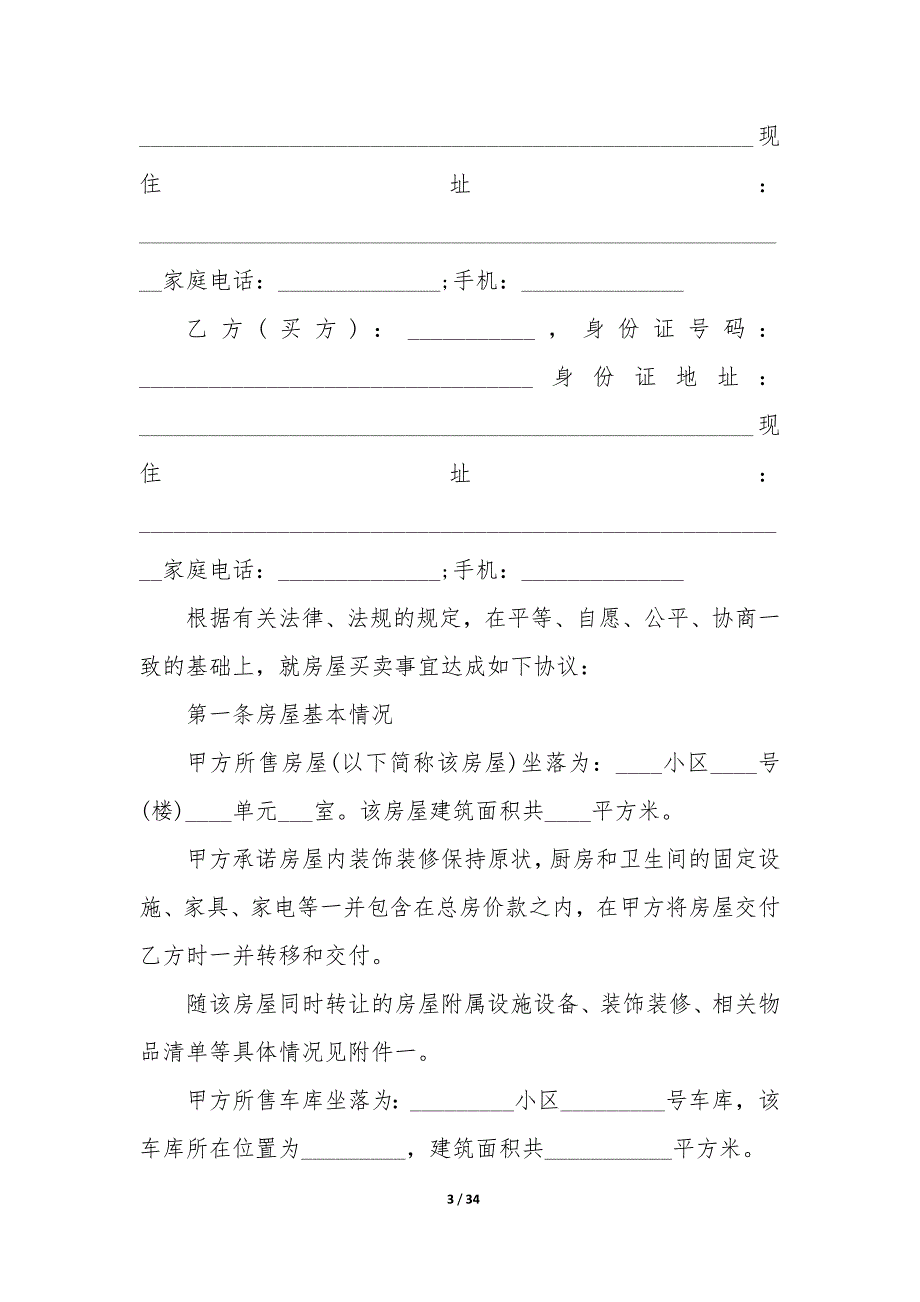 _____________________________________________________现
住 址 :
_______________________________________________________
__家庭电话:______________;手机:______________
乙方(买方):___________,身份证号码:
__________________________________身份证地址:
_____________________________________________________现
住 址 :
_______________________________________________________
__家庭电话:______________;手机:______________
根据有关法律、法规的规定,在平等、自愿、公平、协商一
致的基础上,就房屋买卖事宜达成如下协议:
第一条房屋基本情况
甲方所售房屋(以下简称该房屋)坐落为:____小区____号
(楼)____单元___室。该房屋建筑面积共____平方米。
甲方承诺房屋内装饰装修保持原状,厨房和卫生间的固定设
施、家具、家电等一并包含在总房价款之内,在甲方将房屋交付
乙方时一并转移和交付。
随该房屋同时转让的房屋附属设施设备、装饰装修、相关物
品清单等具体情况见附件一。
甲方所售车库坐落为:_________小区_________号车库,该
车库所在位置为_________,建筑面积共___________平方米。
3 / 34